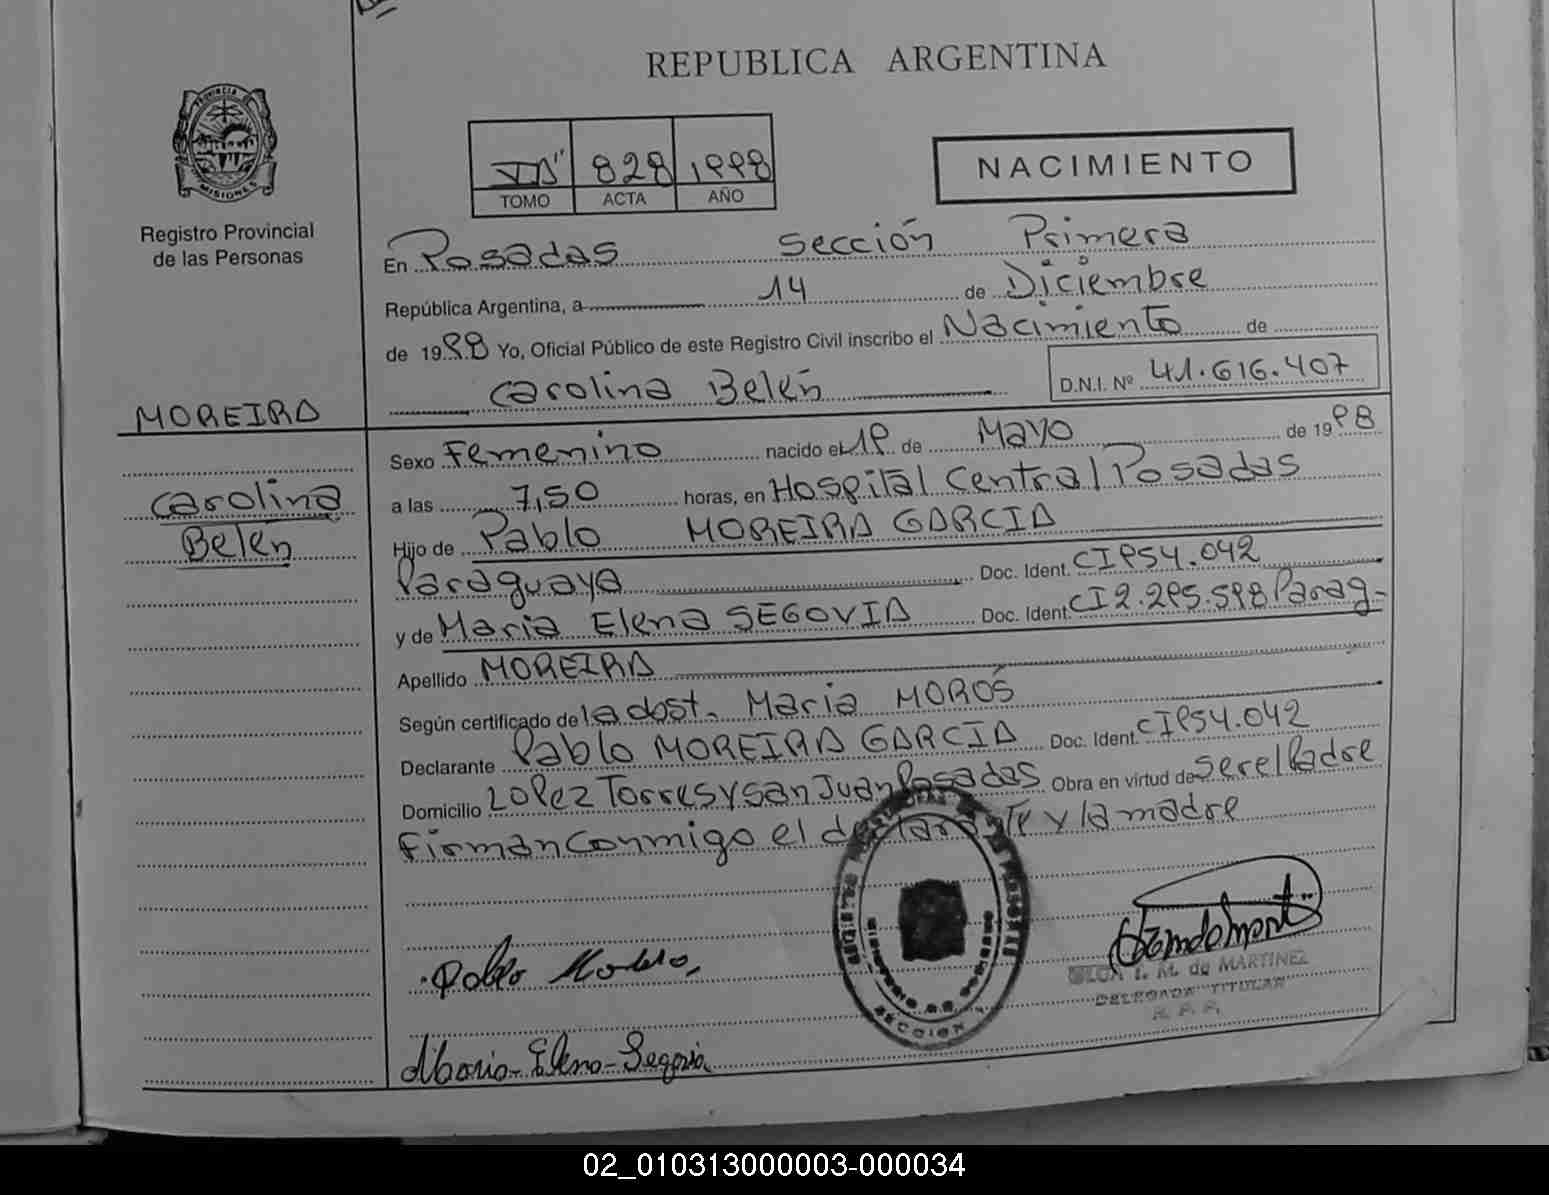 REPUBLICA ARGENTINA
PROVINCIA DE
MISIONES
Registro Provincial
de las Personas
828 1998
TOMO ACTA AÑO
NACIMIENTO
En Posadas Sección Primera
República Argentina, a 14 de Diciembre
de 1998 Yo, Oficial Público de este Registro Civil inscribo el Nacimiento de
Carolina Belén D.N.I. Nº 41.616.407
MOREIRA
Sexo Femenino nacido el 19 de Mayo de 1998
Carolina
Belén
a las 7,50 horas, en Hospital Central Posadas
Hijo de Pablo MOREIRA GARCIA
Paraguaya Doc. Ident. CI954.042
y de Maria Elena SEGOVIA Doc. Ident. CI2.295.598 Parag-
Apellido MOREIRA
Según certificado de la obst. Maria MOROS
Declarante Pablo MOREIRA GARCIA Doc. Ident. CI954.042
Domicilio Lopez Torres y San Juan Posadas Obra en virtud de ser el Padre
Firman Conmigo el declarante y la madre
SECCION 1
I. M. de MARTINEZ
DELEGADA TITULAR
R. P. P.
Maria Elena Segovia
02_010313000003-000034